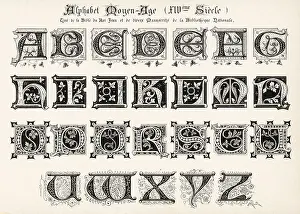 Alphabet Moyen-Age (XIVème Siècle)
Tiré de la Bible du Roi Jean et de divers Manuscrits de la Bibliothèque Nationale.
A B C D E F G
H I J K L M N
O P Q R S T U
U W X Y Z